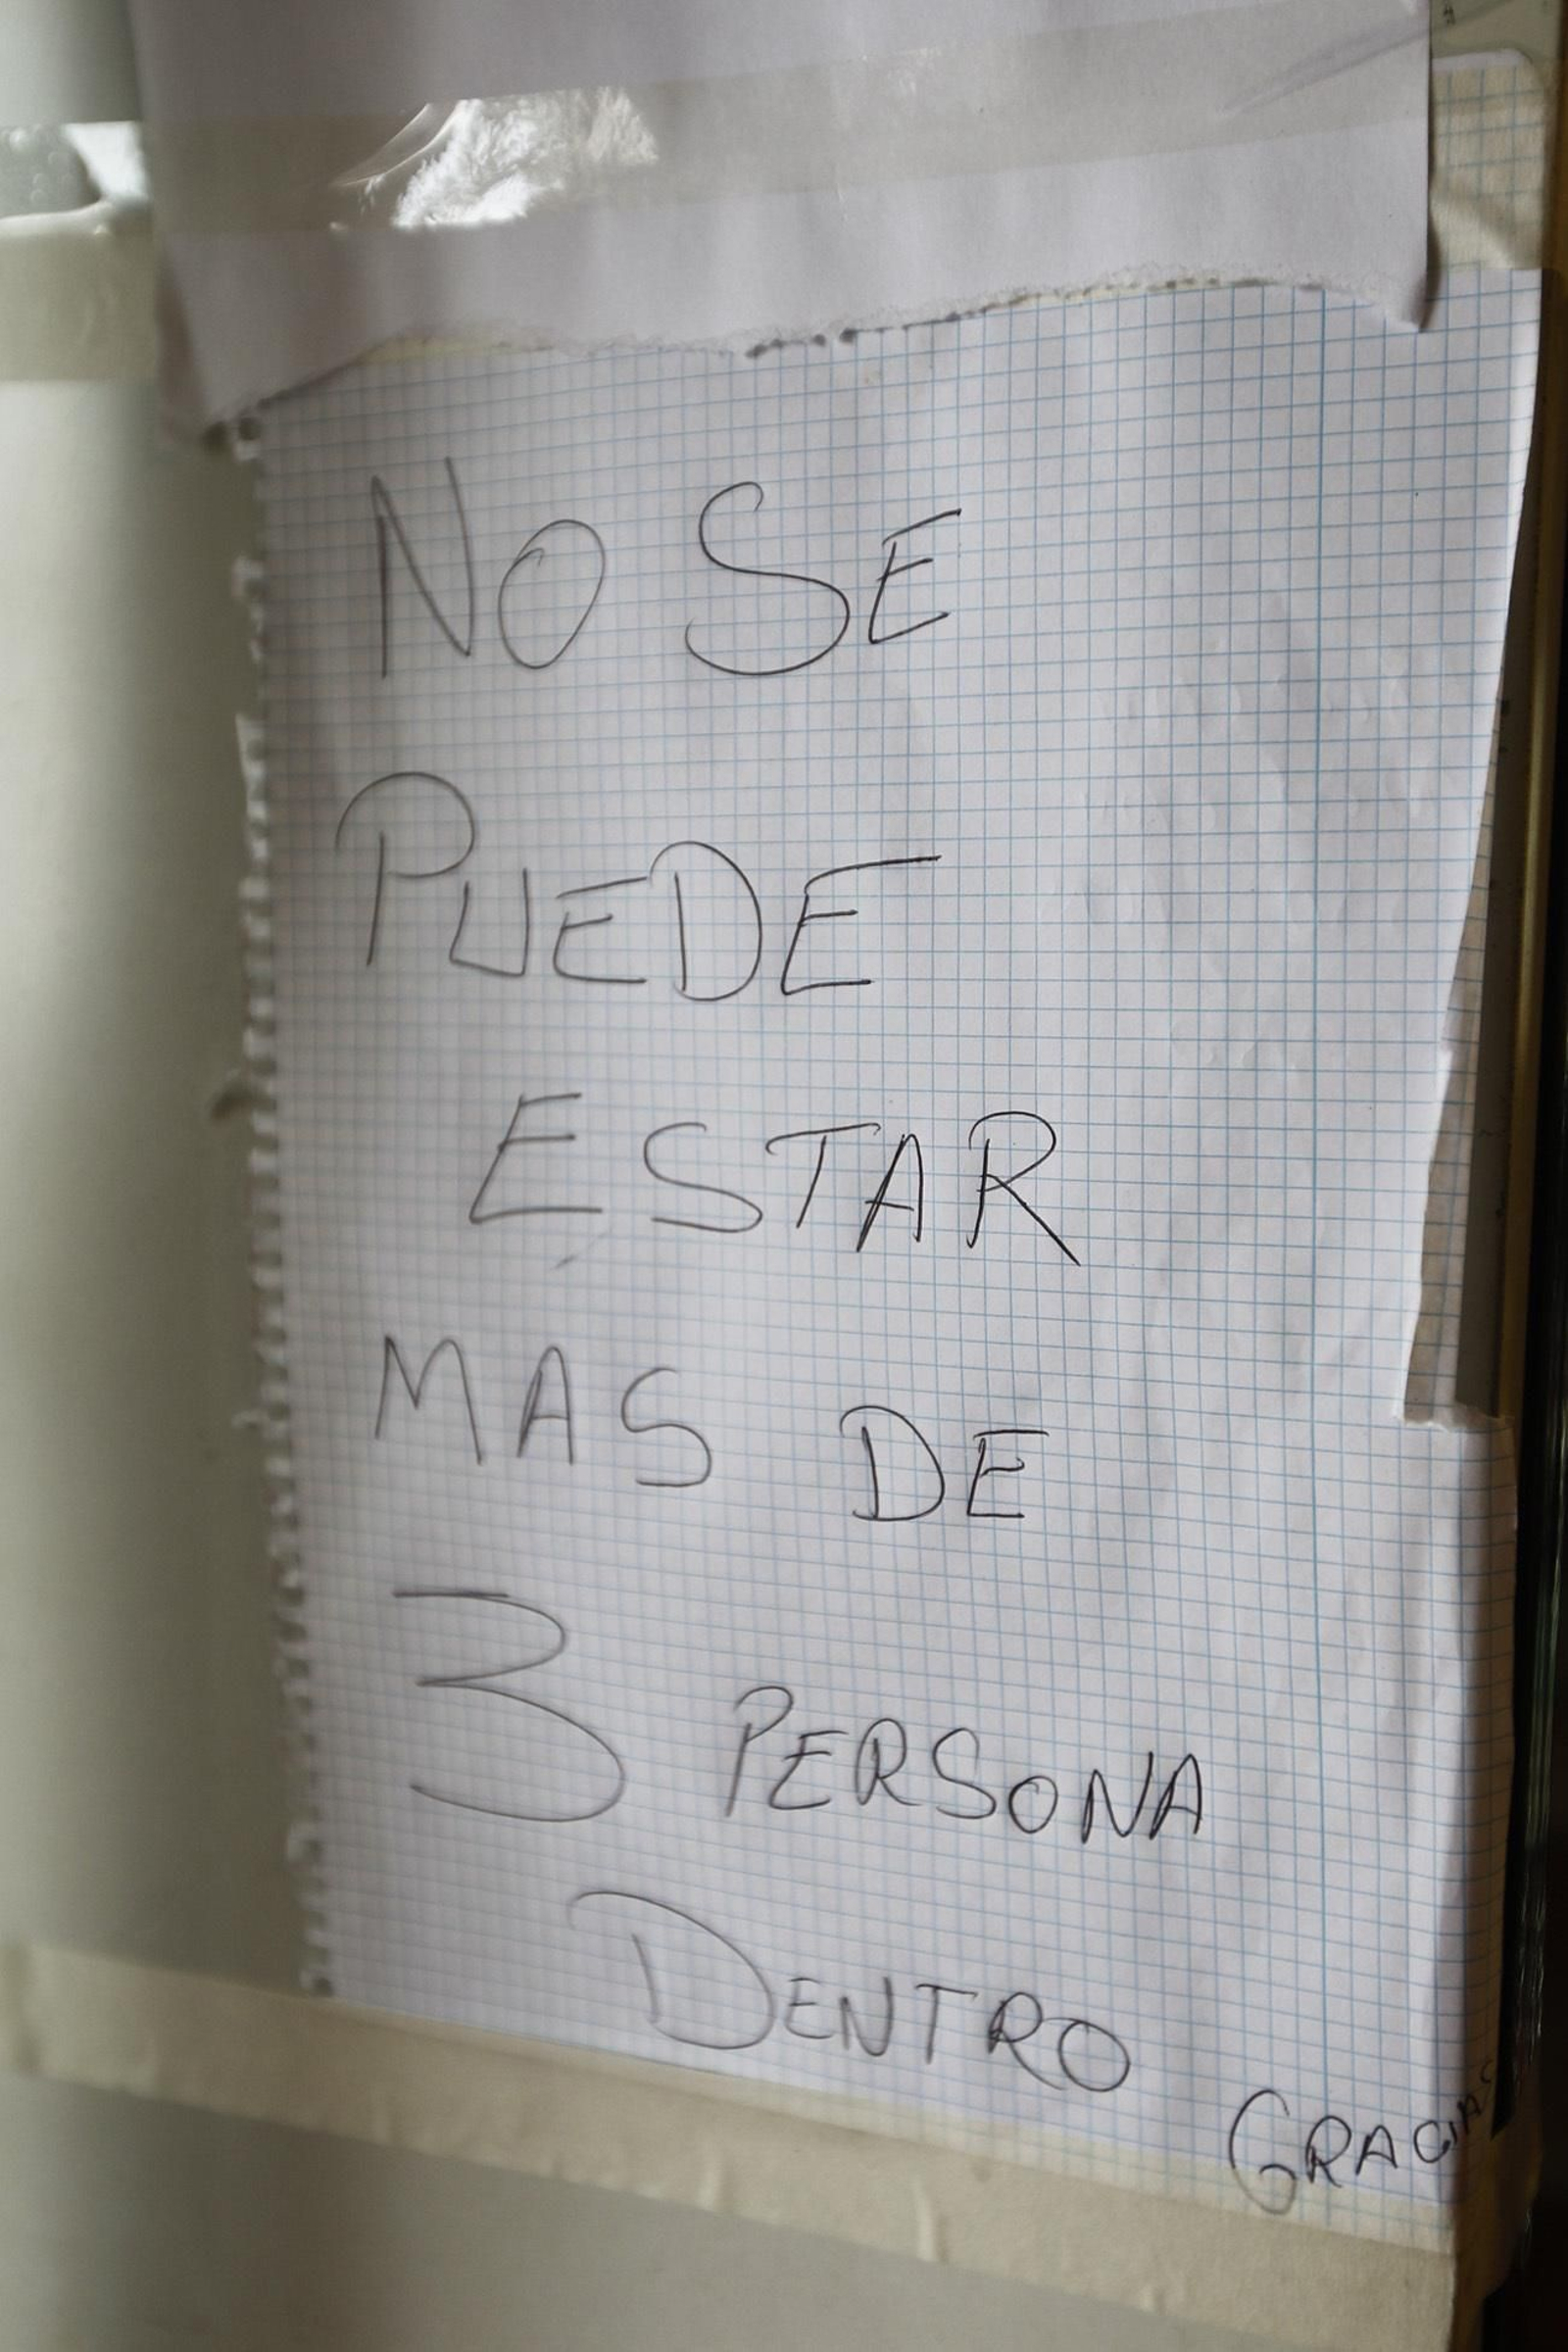 NO SE
PUEDE
ESTAR
MAS DE
3 PERSONA
DENTRO
GRACIAS